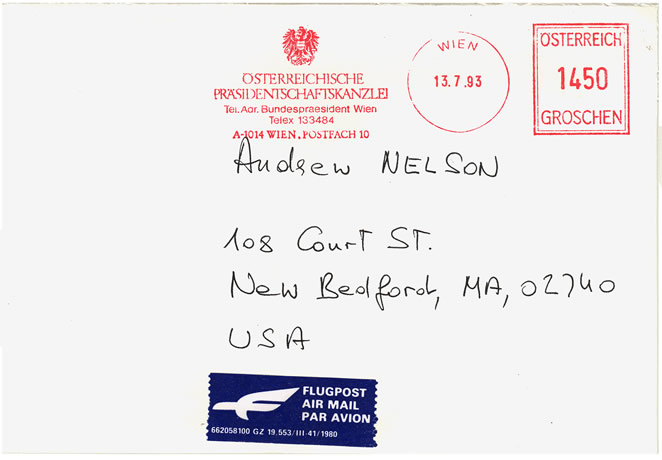 ÖSTERREICHISCHE
PRÄSIDENTSCHAFTSKANZLEI
Tel. Adr. Bundespraesident Wien
Telex 133484
A-1014 WIEN, POSTFACH 10
WIEN
13.7.93
ÖSTERREICH
1450
GROSCHEN
Andrew NELSON
108 Court ST.
New Bedford, MA, 02740
USA
FLUGPOST
AIR MAIL
PAR AVION
662058100 GZ 19.553/III-41/1980